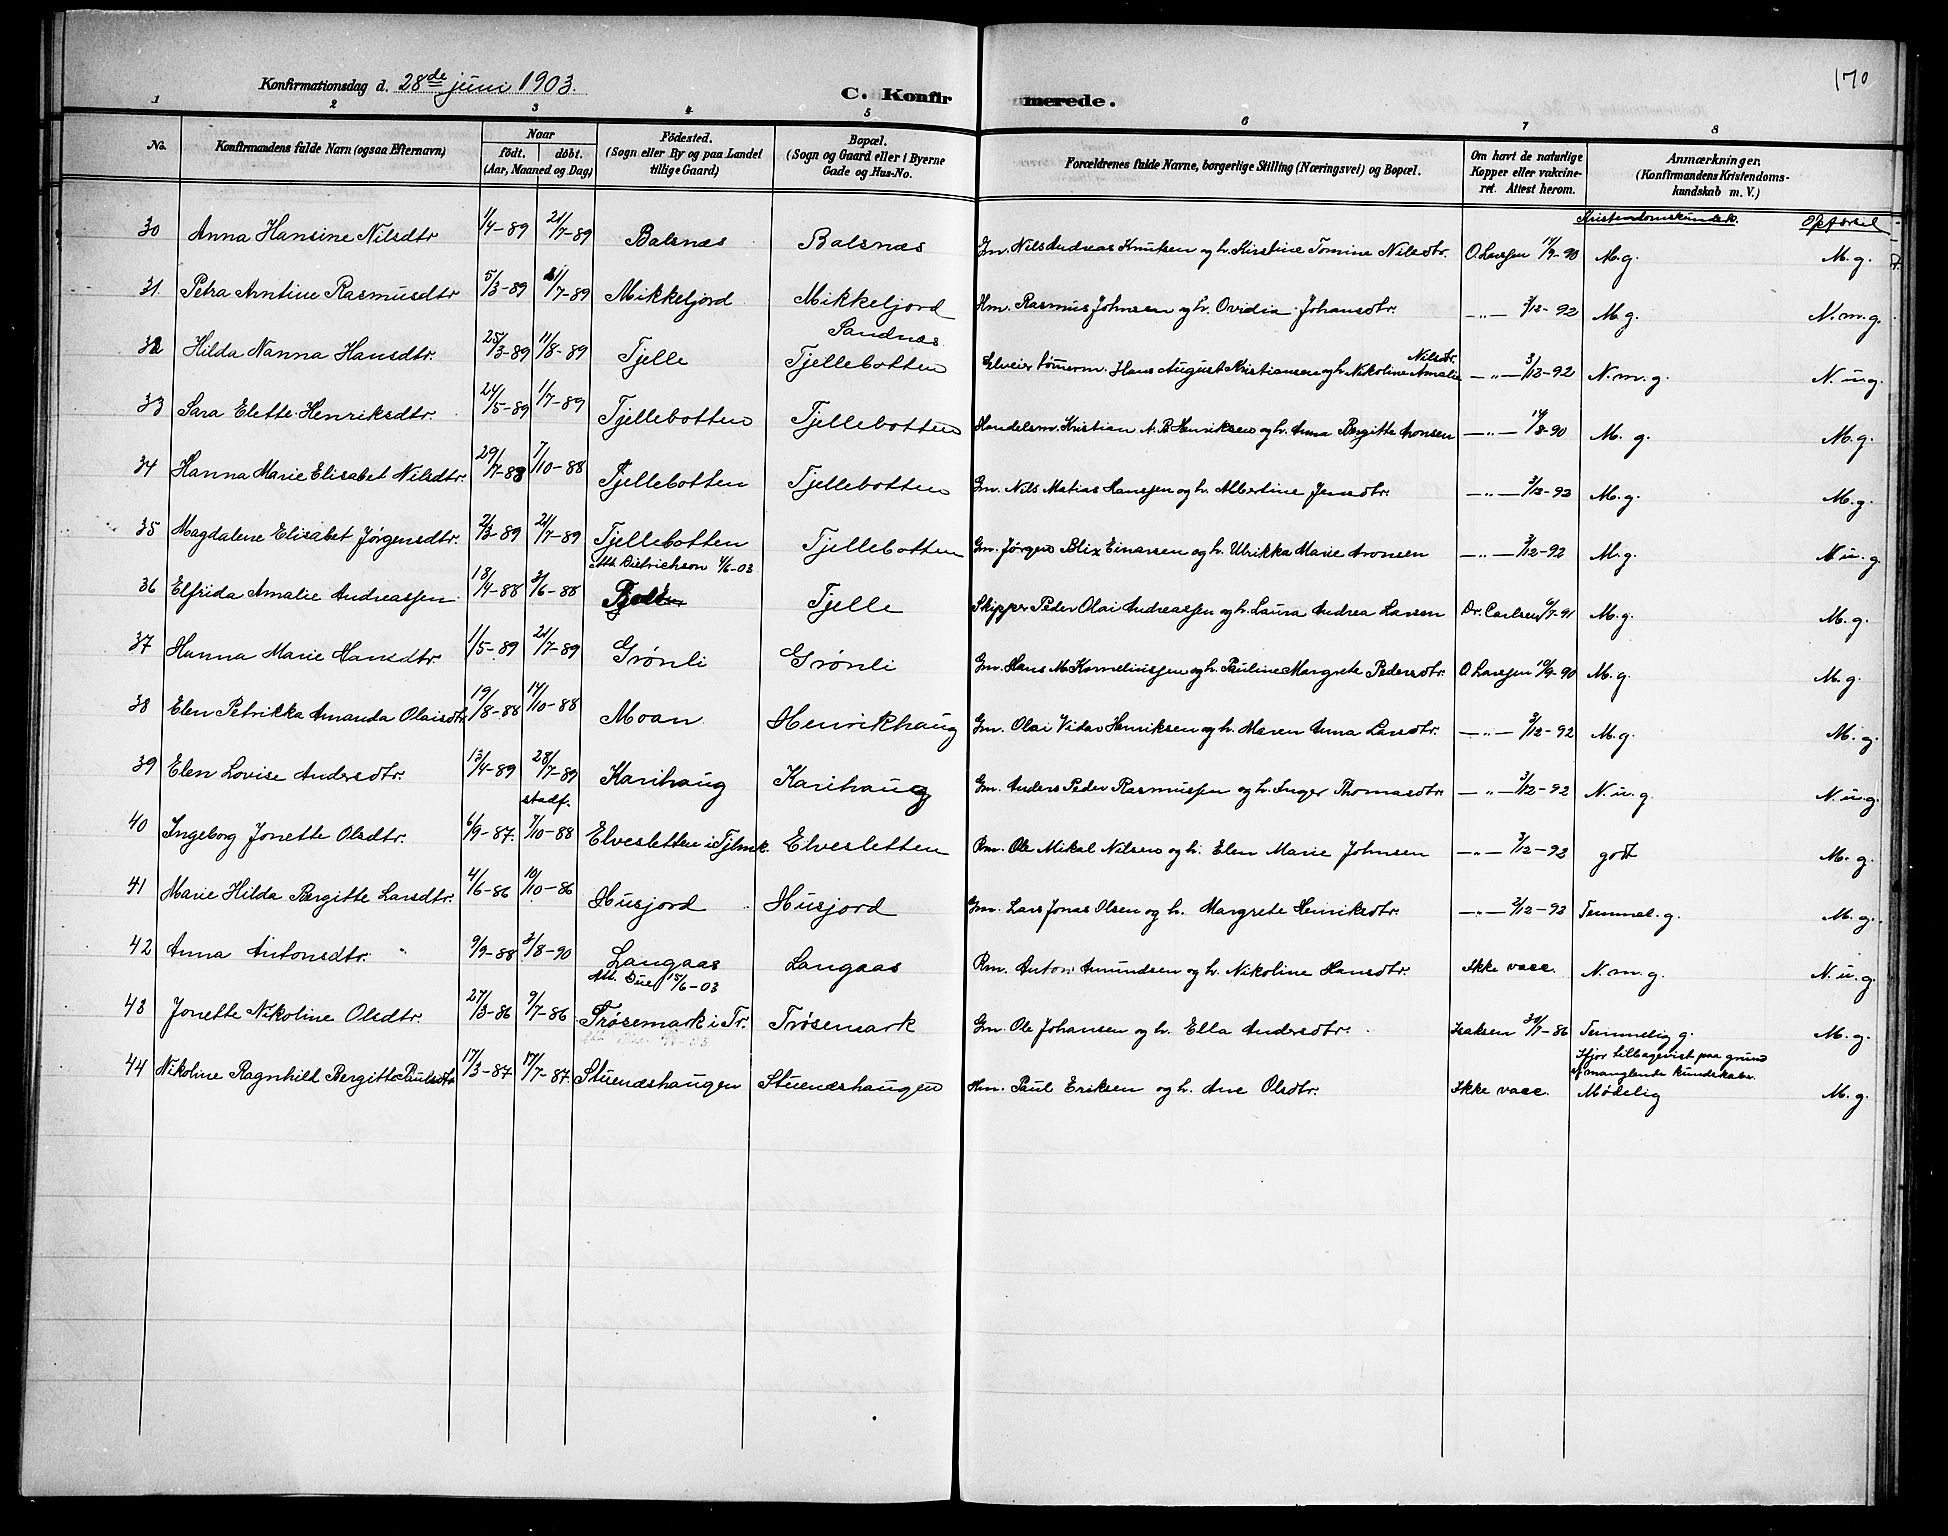 170
Konfirmationsdag d. 28de juni 1903.
C. Konfirmerede.
1 2 3 4 5 6 7 8
No.
Konfirmandens fulde Navn (ogsaa Efternavn)
Naar
født. døbt.
(Aar, Maaned og Dag)
Fødested.
(Sogn eller By og paa Landet
tillige Gaard)
Bopæl.
(Sogn og Gaard eller i Byerne
Gade og Hus-No.
Forældrenes fulde Navne, borgerlige Stilling (Næringsvei) og Bopæl.
Om havt de naturlige
Kopper eller vakcine-
ret. Attest herom.
Anmærkninger.
(Konfirmandens Kristendoms-
kundskab m. V.)
Kristendomskundsk. Opførsel
30 Anna Hansine Nilsdtr 1/4-89 21/7-89 Balsnæs Balsnæs Gm. Nils Andreas Knutsen og h. Kirstine Tomine Nilsdtr. O. Larssen 17/9-90 M.g. M.g.
31 Petra Antine Rasmusdtr 5/3-89 21/7-89 Mikkeljord Mikkeljord Hm. Rasmus Johnsen og h. Ovidia Johansdtr. —"— 3/12-92 M.g. N.m.g.
Sandnæs
32 Hilda Nanna Hansdtr. 25/3-89 11/8-89 Tjelle Tjellebotten tømerm. Hans August Kristiansen og h. Nikoline Amalie Nilsdtr. —"— 3/12-92 N.m.g. N.m.g.
33 Sara Elette Henriksdtr. 24/5-89 1/7-89 Tjellebotten Tjellebotten Handelsm. Kristian A. B. Henriksen og h. Anna Bergitte Aronsen —"— 19/8-90 M.g. M.g.
34 Hanna Marie Elisabet Nilsdtr. 29/7-88 7/10-88 Tjellebotten Tjellebotten Gm. Nils Matias Hanssen og h. Albertine Jensdtr. —"— 3/12-92 M.g. M.g.
35 Magdalene Elisabet Jørgensdtr. 2/3-89 21/7-89 Tjellebotten Tjellebotten Gm. Jørgen Blix Einarsen og h. Ulrikka Marie Aronsen —"— 3/12-92 M.g. M.g.
Att. Dietrichson 4/6-03
36 Elfrida Amalie Andreassen 18/4-88 3/6-88 Tjelle Skipper Peder Olai Andreassen og h. Laura Andrea Larsen Dr. Carlsen 6/7-91 M.g. M.g.
37 Hanna Marie Hansdtr. 1/5-89 21/7-89 Grønli Grønli Gm. Hans M. Korneliussen og h. Pauline Margrete Pedersdtr. O. Larssen 19/9-90 M.g. M.g.
38 Elen Petrikka Amanda Olaisdtr. 19/8-88 14/10-88 Moan Henrikhaug Gm. Olai Vidar Henriksen og h. Maren Anna Larsdtr. —"— 3/12-92 M.g. M.g.
39 Elen Lovise Andersdtr. 13/4-89 28/7-89 Karihaug Karihaug Gm. Anders Peder Rasmussen og h. Inger Thomasdtr. —"— 3/12-92 N.m.g. N.m.g.
stadf.
40 Ingeborg Jonette Olsdtr. 6/9-87. 7/10-88 Elvesletten i Tjelmk. Elvesletten Rm. Ole Mikal Nilsen og h. Elen Marie Johnsen —"— 3/12-92 godt M.g.
41 Marie Hilda Bergitte Larsdtr. 4/6-86 10/10-86 Husjord Husjord Gm. Lars Jonas Olsen og h. Margrete Henriksdtr. —"— 3/12-92 Temmel. g. M.g.
42 Anna Antonsdtr. 9/9-88 3/8-90 Langaas Langaas Rm. Anton Amundsen og h. Nikoline Hansdtr. Ikke vacc. N.m.g. N.m.g.
Att. Due 15/6-03
43 Jonette Nikoline Olsdtr. 27/3-86 9/7-86 Trøsemark i Tr. Trøsemark Gm. Ole Johansen og h. Ella Andersdtr. Isaksen 30/7-86 Temmelig g. M.g.
Ifjor tilbagevist paa grund
af manglende kundskaber.
44 Nikoline Ragnhild Bergitte Paulsdtr. 17/3-87 17/7-87. Stuenæshaugen Stuenæshaugen Hm. Paul Eriksen og h. Ane Olsdtr. Ikke vacc. Mådelig M.g.